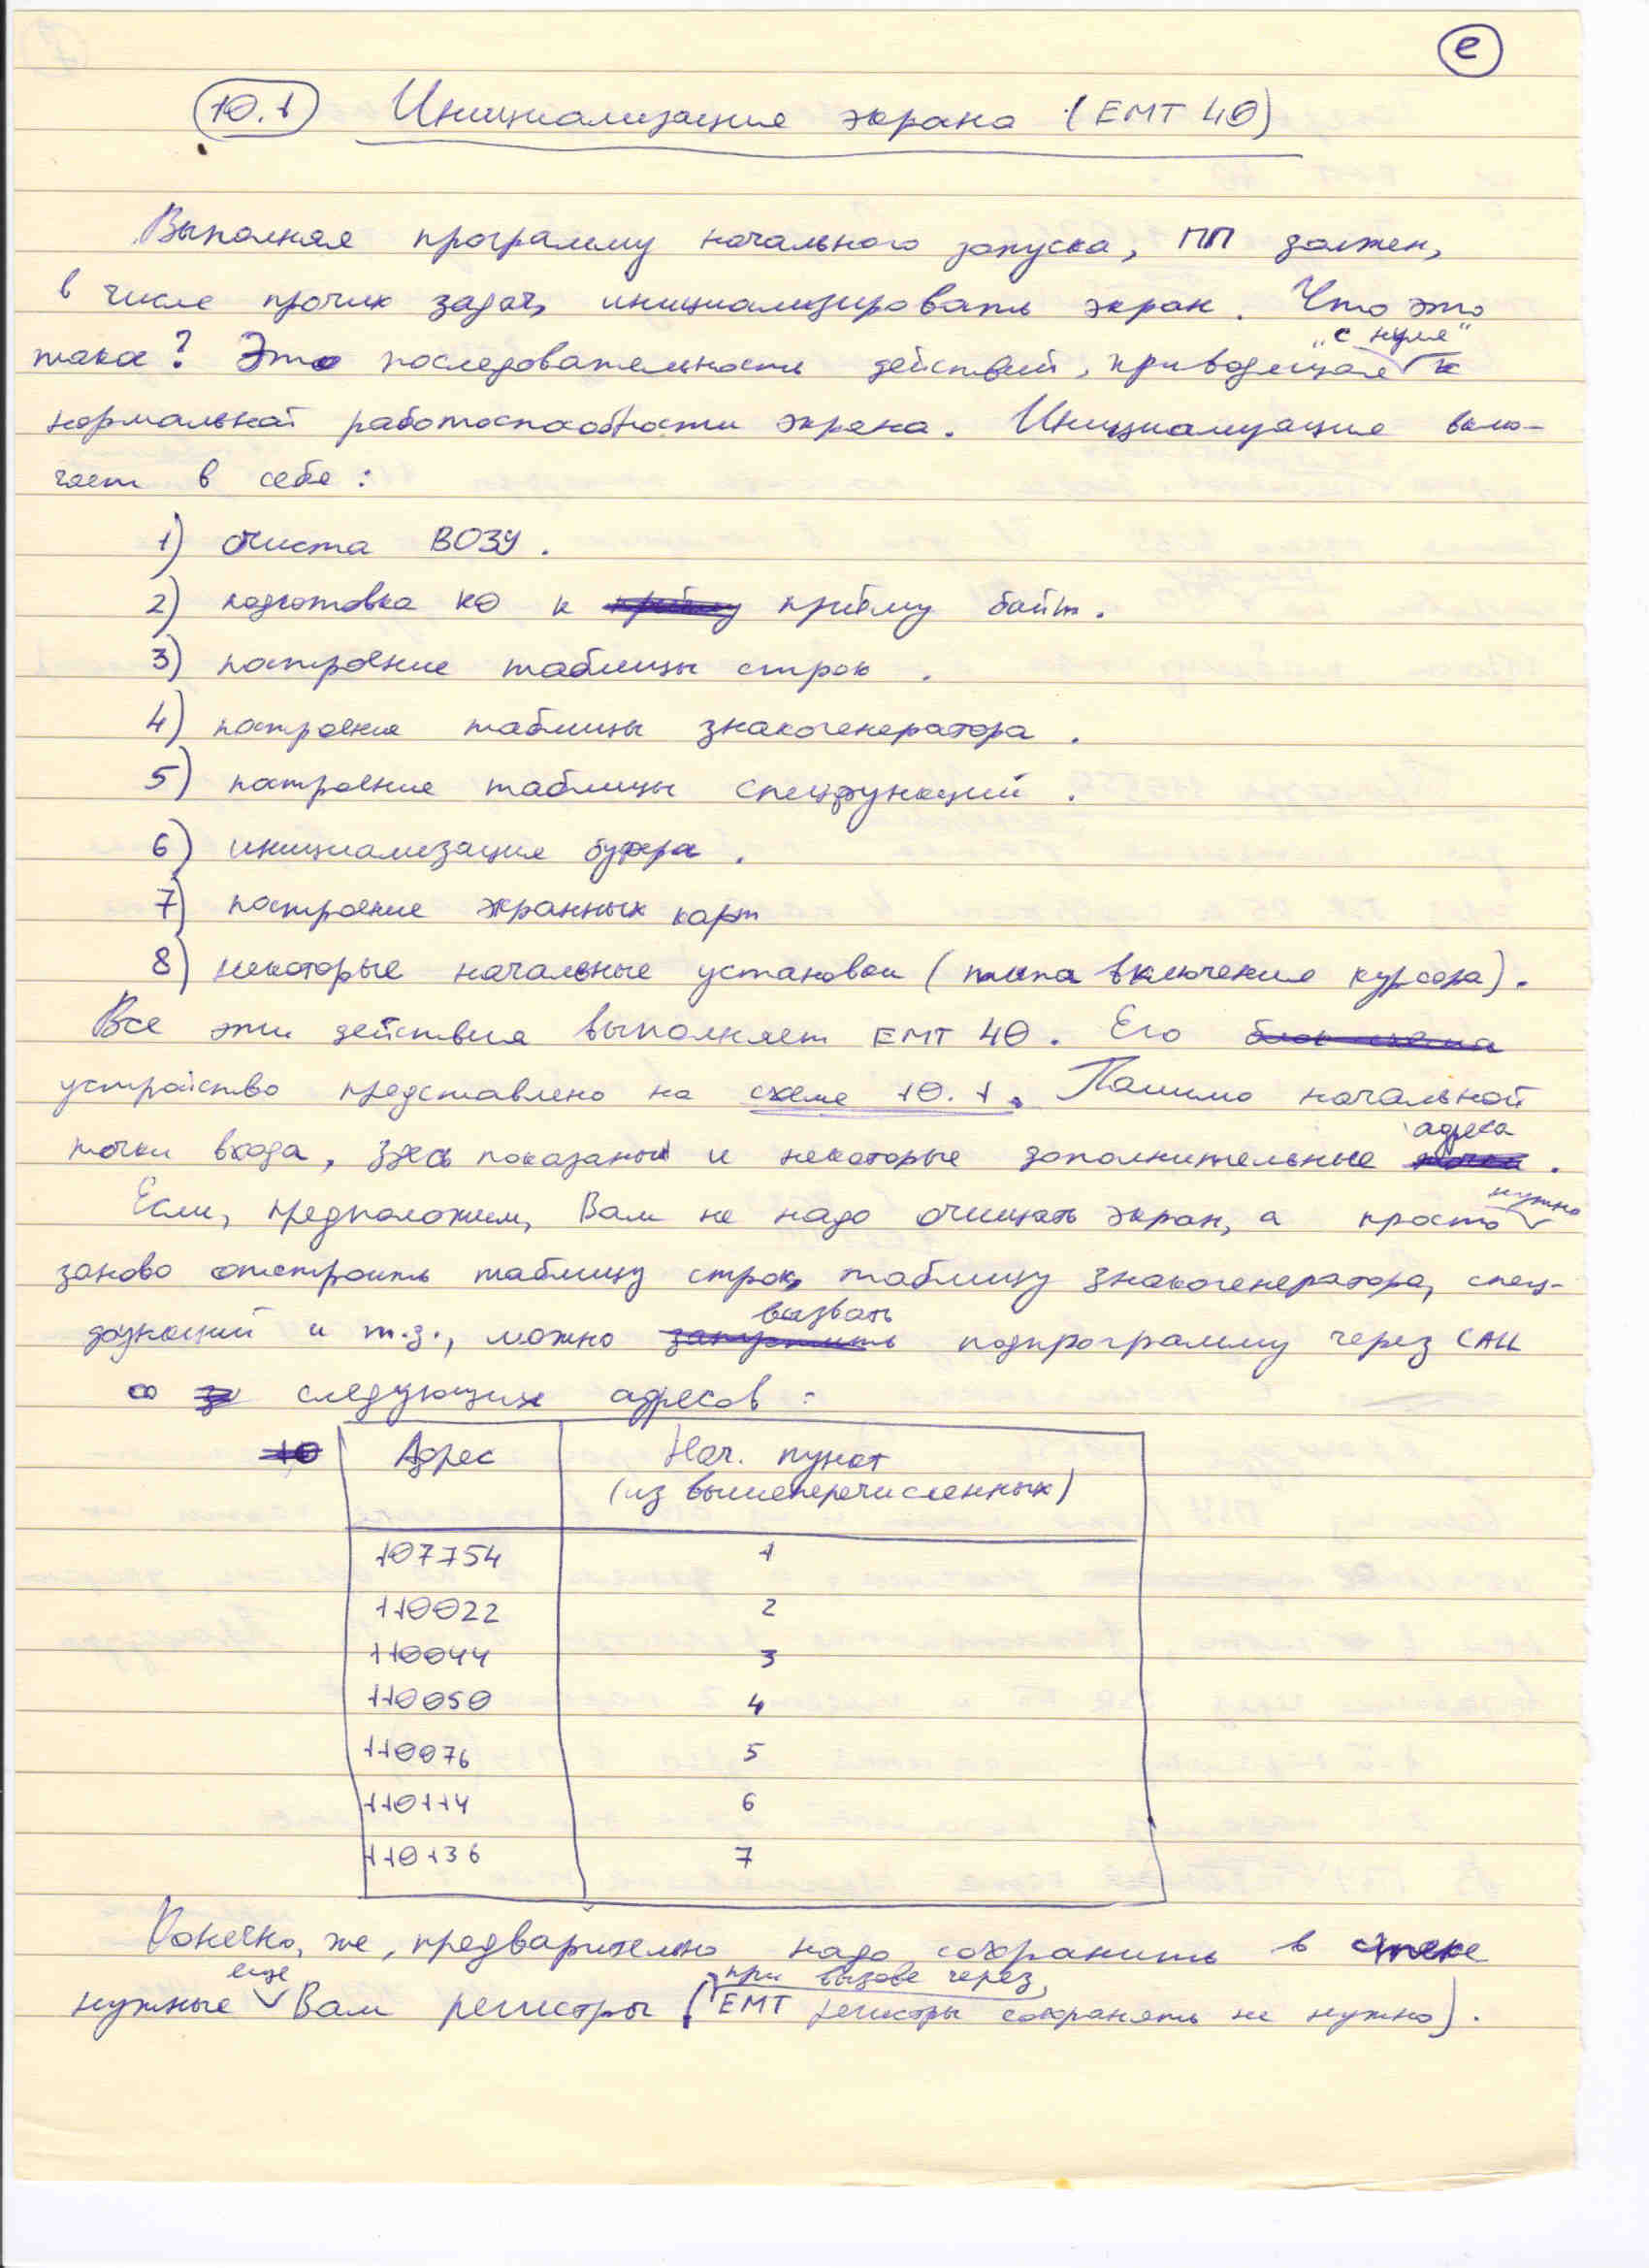 е
10.1 Инициализация экрана (EMT 40)
Выполняя программу начального запуска, ПП должен,
в числе прочих задач, инициализировать экран. Что это
такое? Это последовательность действий, приводящая "с нуля" к
нормальной работоспособности экрана. Инициализация вклю-
чает в себя:
1) очистка ВОЗУ.
2) подготовка КО к приёму байт.
3) построение таблицы строк.
4) построение таблицы знакогенератора.
5) построение таблицы спецфункций.
6) инициализация буфера.
7) построение экранных карт
8) некоторые начальные установки (типа включения курсора).
Все эти действия выполняет EMT 40. Его
устройство представлено на схеме 10.1. Помимо начальной
точки входа, здесь показаны и некоторые дополнительные адреса.
Если, предположим, Вам не надо очищать экран, а просто нужно
заново отстроить таблицу строк, таблицу знакогенератора, спец-
функций и т.д., можно вызвать подпрограмму через CALL
со следующих адресов:
Адрес Нач. пункт
(из вышеперечисленных)
107754 1
110022 2
110044 3
110050 4
110076 5
110114 6
110136 7
Конечно, же, предварительно надо сохранить в стеке
нужные еще Вам регистры (при вызове через EMT регистры сохранять не нужно).